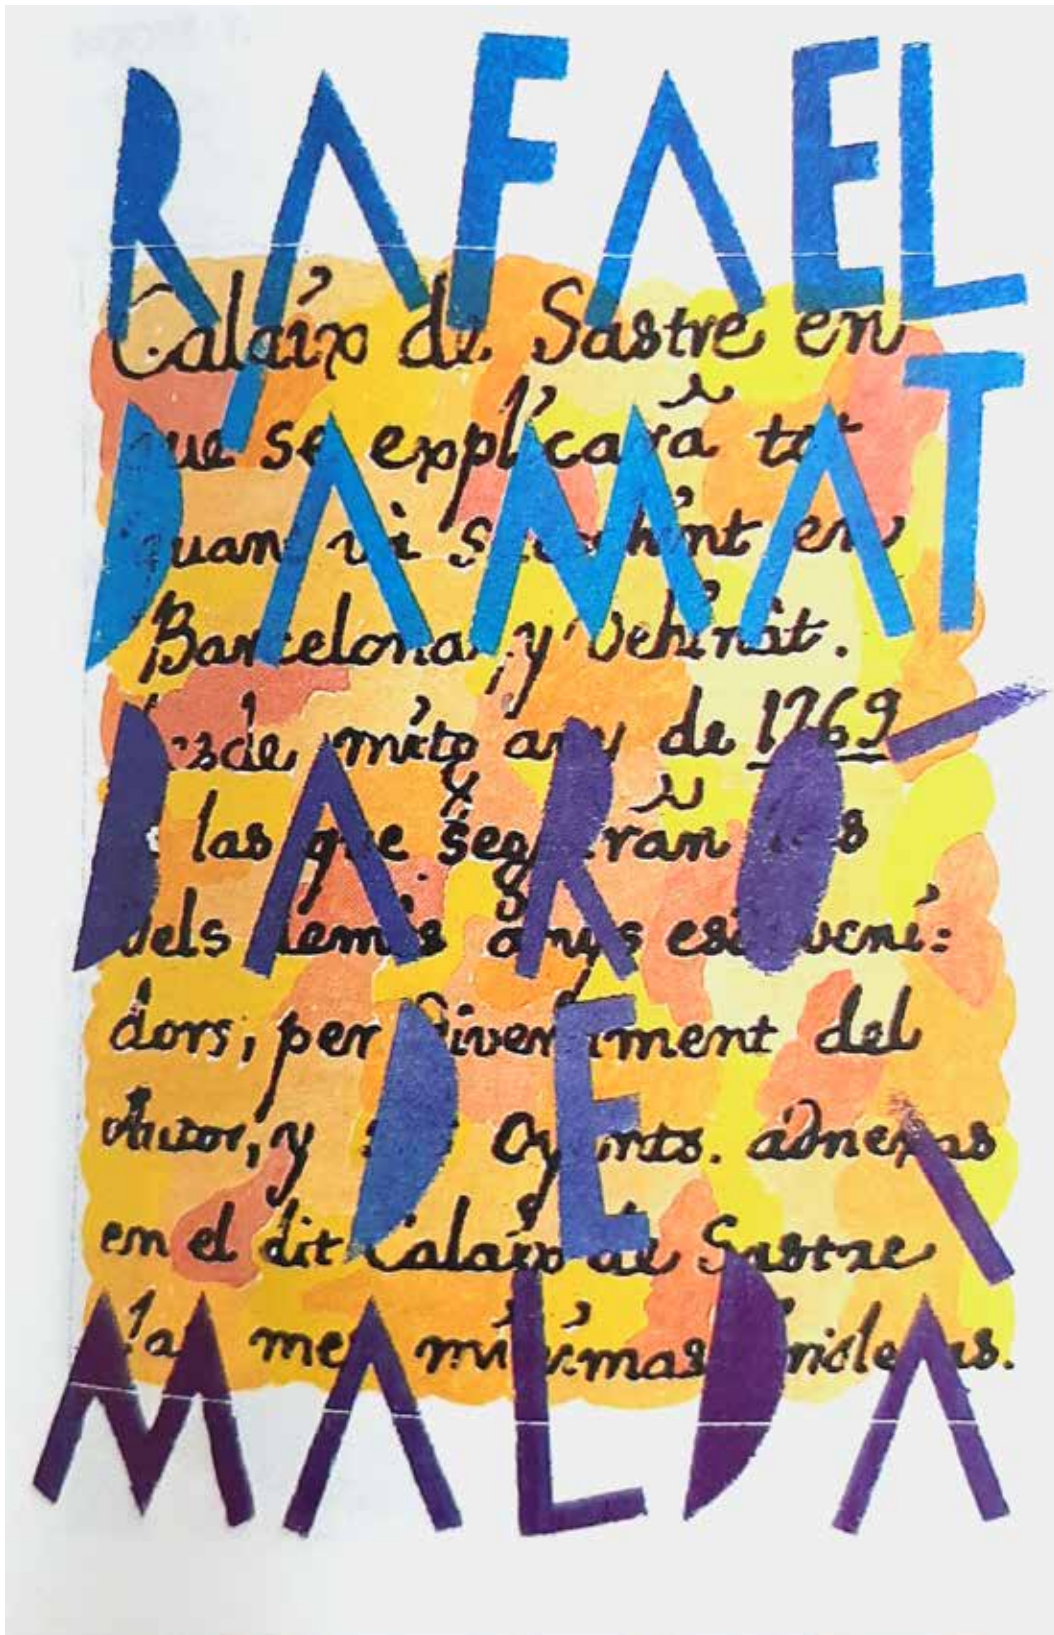 RAFAEL
D'AMAT
BARÓ
DE
MALDÀ
Calaix de Sastre en
que se explicarà tot
quant và succehint en
Barcelona, y Vehinat.
desde mitg any de 1769
las que seguiràn
dels demès anys esdeveni=
dors, per divertiment del
Autor, y Oyents. adnexas
en el dit Calaix de Sastre
las mes mínimas frioleras.